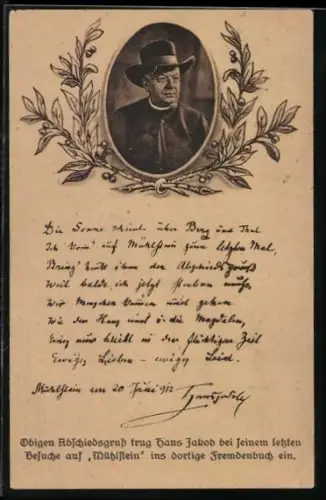 Die Sonne scheint über Berg und Thal
Ich kom' auf Mühlstein zum letzten Mal,
Bring' heute ihm den Abschiedsgruß
Weil balde ich jetzt sterben muß.
Wir Menschen kommen und gehen
Wie der Hans und die Magdalen,
Eins nur bleibt in der flüchtigen Zeit
Ewiges Lieben – ewiges Leid.
Mühlstein am 20 Juni 1912
Hansjakob
Obigen Abschiedsgruß trug Hans Jakob bei seinem letzten
Besuche auf „Mühlstein" ins dortige Fremdenbuch ein.